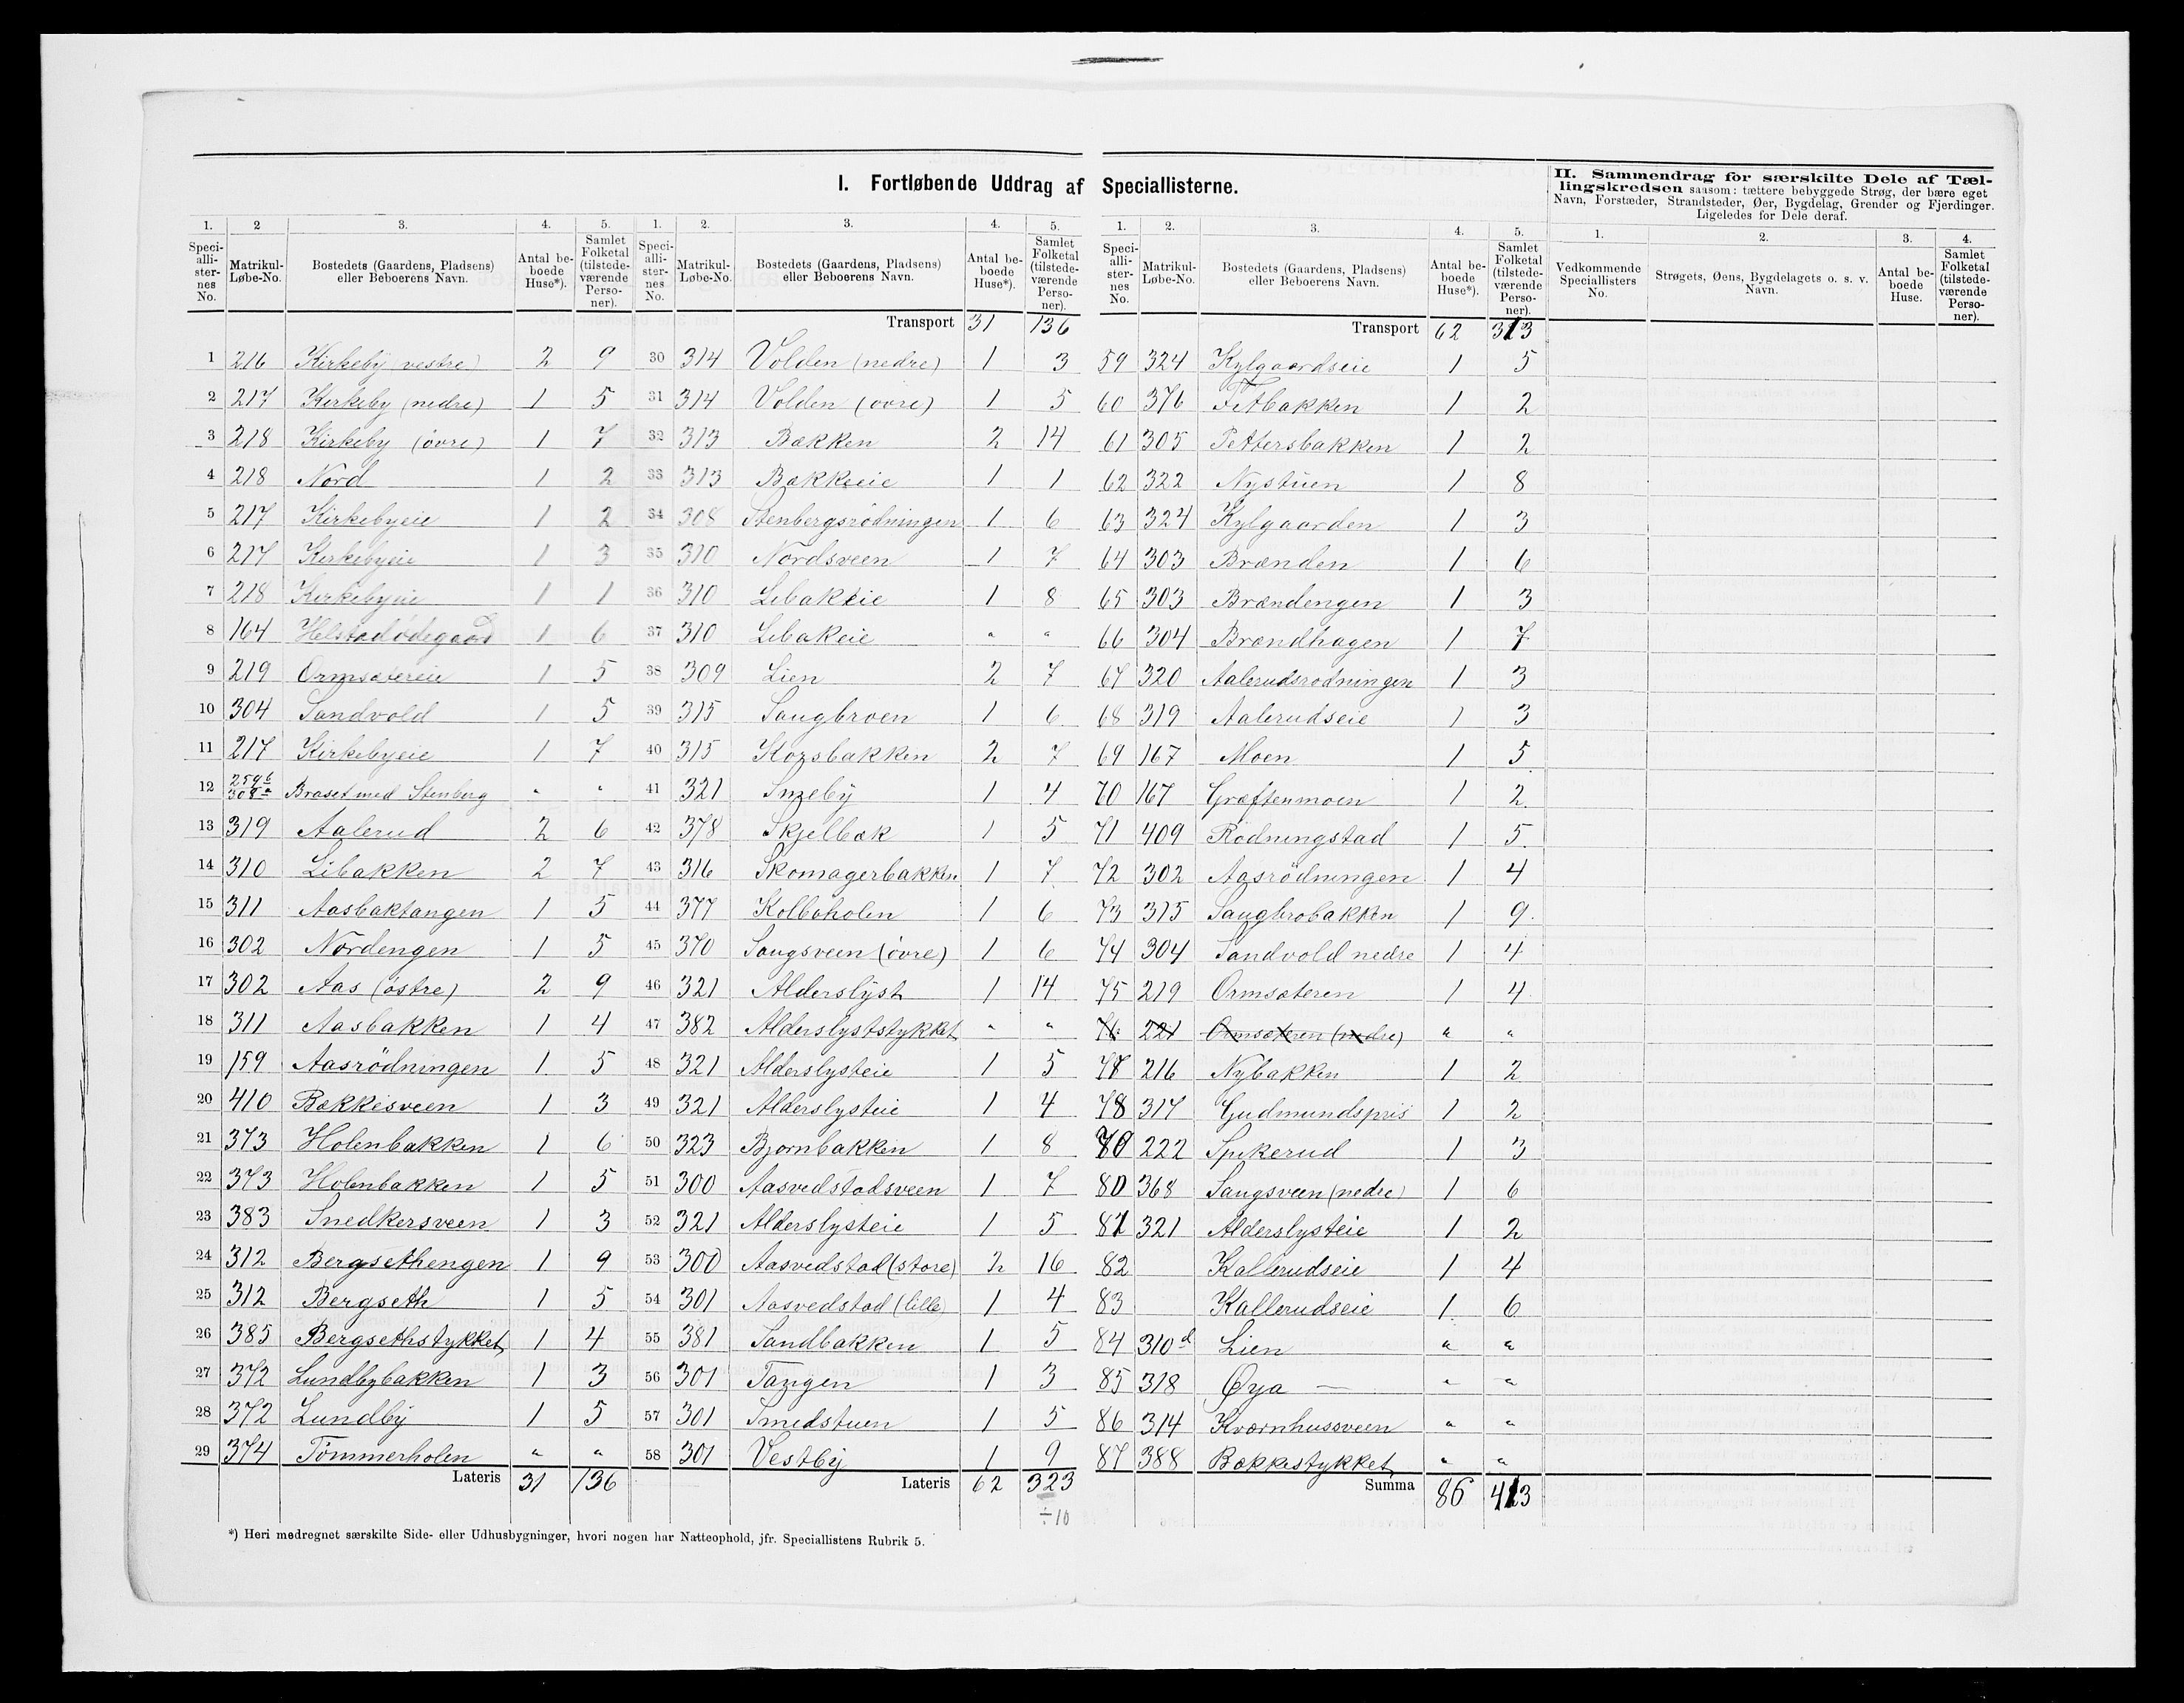 I. Fortløbende Uddrag af Speciallisterne.
II. Sammendrag for særskilte Dele af Tællingskredsen saasom: tættere bebyggede Strøg, der bære eget Navn, Forstæder, Strandsteder, Øer, Bygdelag, Grender og Fjerdinger. Ligeledes for Dele deraf.
1. 2 3. 4. 5.
Speciallisternes No. Matrikul-Løbe-No. Bostedets (Gaardens, Pladsens) eller Beboerens Navn. Antal beboede Huse*). Samlet Folketal (tilstedeværende Personer).
1 216 Kirkeby (vestre) 2 9
2 217 Kirkeby (nedre) 1 5
3 218 Kirkeby (övre) 1 7
4 218 Nord 1 2
5 217 Kirkebyeie 1 2
6 217 Kirkebyeie 1 3
7 218 Kirkebyeie 1 1
8 164 Helstadödegaard 1 6
9 219 Ormsætereie 1 5
10 304 Sandvold 1 5
11 217 Kirkebyeie 1 7
12 259b 308a Braset med Stenberg " "
13 319 Aalerud 2 6
14 310 Libakken 2 7
15 311 Aasbaktangen 1 5
16 302 Nordengen 1 5
17 302 Aas (östre) 2 9
18 311 Aasbakken 1 4
19 159 Aasrödningen 1 5
20 410 Bækkesveen 1 3
21 373 Holenbakken 1 6
22 373 Holenbakken 1 5
23 383 Snedkersveen 1 3
24 312 Bergsethengen 1 9
25 312 Bergseth 1 5
26 385 Bergsethstykket 1 4
27 372 Lundbybakken 1 3
28 372 Lundby 1 5
29 374 Tömmerholen " "
Lateris 31 136
1. 2. 3. 4. 5.
Speciallisternes No. Matrikul-Løbe-No. Bostedets (Gaardens, Pladsens) eller Beboerens Navn. Antal beboede Huse*). Samlet Folketal (tilstedeværende Personer).
Transport 31 136
30 314 Volden (nedre) 1 3
31 314 Volden (övre) 1 5
32 313 Bækken 2 14
33 313 Bækkeeie 1 1
34 308 Stenbergsrödningen 1 6
35 310 Nordsveen 1 7
36 310 Libakeie 1 8
37 310 Libakeie " "
38 309 Lien 2 7
39 315 Saugbroen 1 6
40 315 Korsbakken 2 7
41 321 Smeby 1 4
42 378 Skjelbæk 1 5
43 316 Skomagerbakken 1 7
44 377 Kolboholen 1 6
45 370 Saugsveen (övre) 1 6
46 321 Alderslyst 1 14
47 382 Alderslyststykket " "
48 321 Alderslysteie 1 5
49 321 Alderslysteie 1 4
50 323 Bjornbakken 1 8
51 300 Aasvedstadsveen 1 7
52 321 Alderslysteie 1 5
53 300 Aasvedstad (store) 2 16
54 301 Aasvedstad (lille) 1 4
55 381 Sandbakken 1 5
56 301 Tangen 1 3
57 301 Smedstuen 1 5
58 301 Vestby 1 9
Lateris 62 323
÷10
1. 2. 3. 4. 5.
Speciallisternes No. Matrikul-Løbe-No. Bostedets (Gaardens, Pladsens) eller Beboerens Navn. Antal beboede Huse*). Samlet Folketal (tilstedeværende Personer).
Transport 62 313
59 324 Kylgaardseie 1 5
60 376 Fetbakken 1 2
61 305 Pettersbakken 1 2
62 322 Nystuen 1 8
63 324 Kylgaarden 1 3
64 303 Brænden 1 6
65 303 Brændengen 1 3
66 304 Brændhagen 1 7
67 320 Aalerudsrodningen 1 3
68 319 Aalerudseie 1 3
69 167 Moen 1 5
70 167 Græftenmoen 1 2
71 409 Rödningstad 1 5
72 302 Aasrödningen 1 4
73 315 Saugbrobakken 1 9
74 304 Sandvold nedre 1 4
75 219 Ormsæteren 1 4
76 221 Ormsæteren (nedre) " "
77 216 Nybakken 1 2
78 317 Gudmundspris 1 2
79 222 Spikerud 1 3
80 368 Saugsveen (nedre) 1 6
81 321 Alderslysteie 1 2
82 Kallerudseie 1 4
83 Kallerudseie 1 6
84 310d Lien " "
85 318 Øya — " "
86 314 Kværnhussveen " "
87 388 Bækkestykket " "
Summa 86 413
1. 2. 3. 4.
Vedkommende Speciallisters No. Strøgets, Øens, Bygdelagets o. s. v. Navn. Antal beboede Huse. Samlet Folketal (tilstedeværende Personer).
*) Heri medregnet særskilte Side- eller Udhusbygninger, hvori nogen har Natteophold, jfr. Speciallistens Rubrik 5.